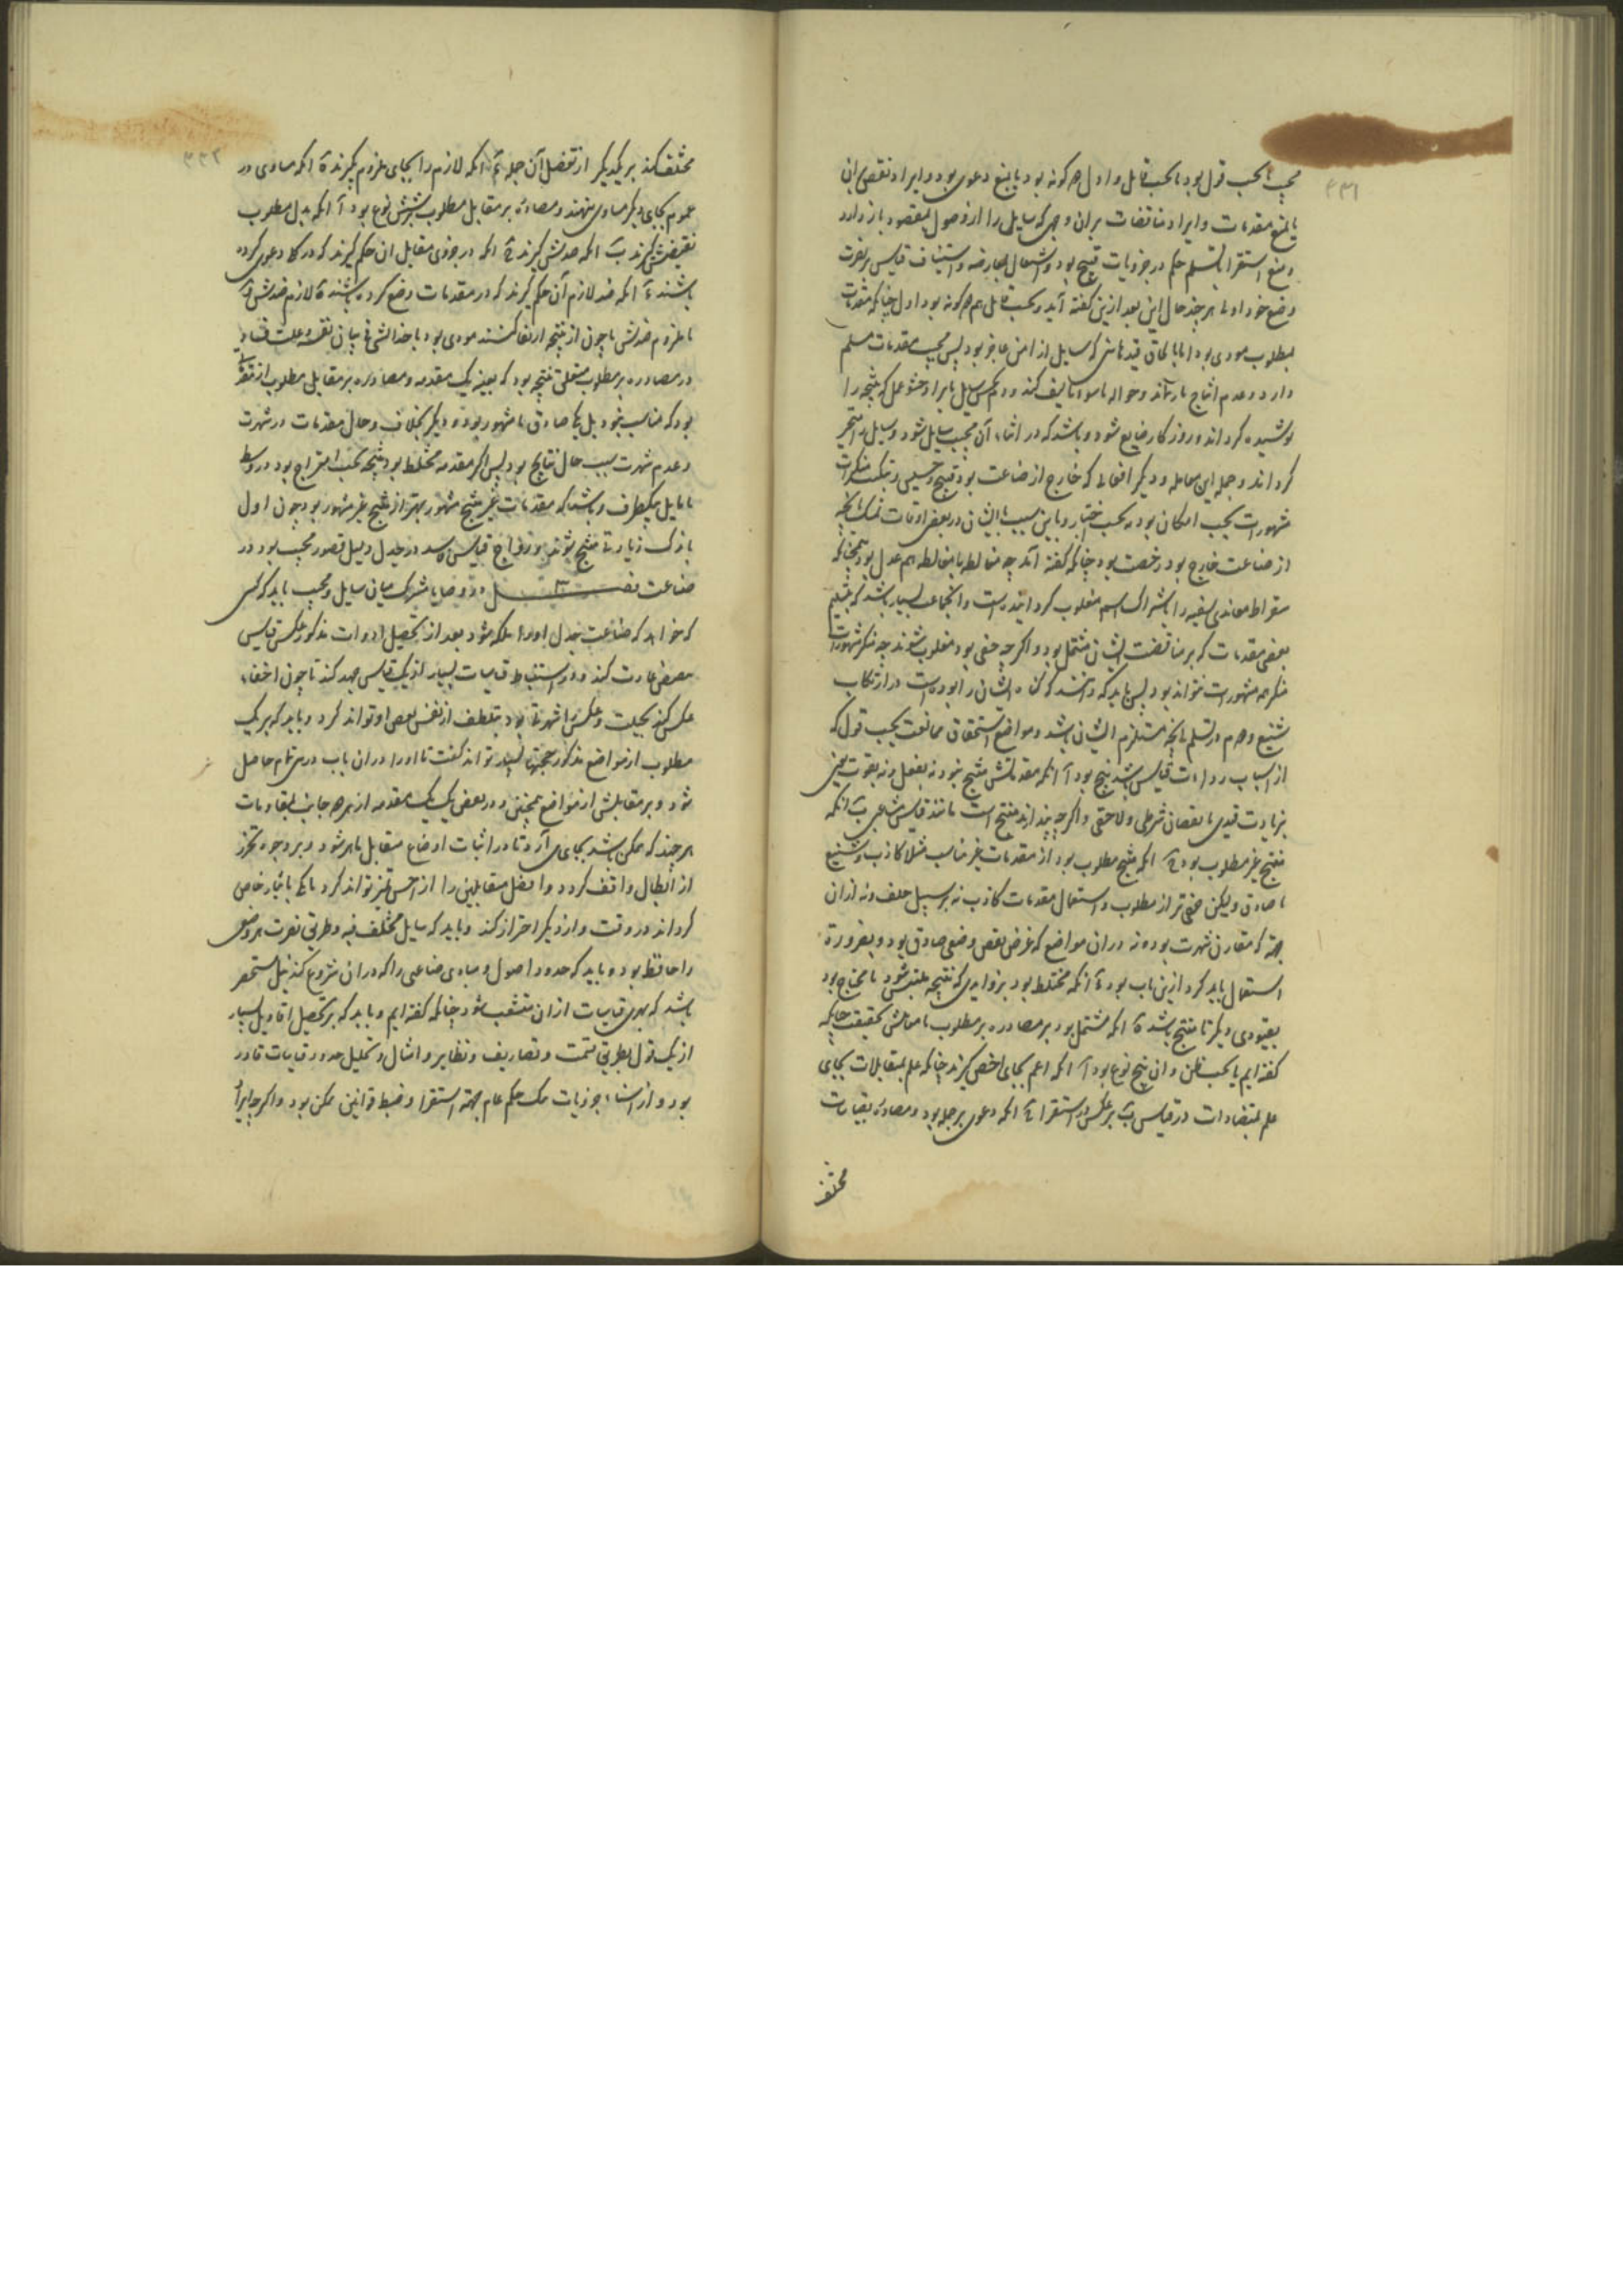 مجیب بحسب قول بود یا بحسب قایل و اول هم کونه بود یا بمنع دعوی بود و ایراد نقض ان
یا بمنع مقدمات و ایراد مناقضات بران وجهی که سایل را از وصول بمقصود باز دارد
و منع استقرا بتسلیم حکم در جزویات قبیح بود و اشتغال بمعارضه و استیناف قیاس بر نصرت
وضع خود اولا هر چند حال این بعد ازین کفته آید و بحسب قایل هم کونه بود اول چنانکه مقدمات
بمطلوب مودی بود اما بالحاق قیدهایی که سایل از امن عاجز بود پس مجیب مقدمات مسلم
دارد و عدم انتاج باز نماند و حواله با سوء تالیف کند دوم که سایل بایراد حشو عمل که نتیجه را
پوشیده کرداند و روزکار ضایع شود و باشد که در اثناء آن مجیب سایل شود و سایل را متحیر
کرداند و جمله این معامله و دیکر افعالی که خارج از صناعت بود قبیح و خسیس و تبکیت منکرات
مشهورات بحسب امکان بود نه بحسب اختیار و باین سبب با ایشان در بعضی اوقات تمسک بآنچه
از صناعت خارج بود رخصت بود چنانکه کفته آند چه مغالطه با مغالط هم عدل بود همچنانکه
سقراط معاندی سفیه را باشتراک اسم مغلوب کردانیده است و انجماعت بسیار باشد که بتسلیم
بعضی مقدمات که بر مناقضت ایشان مشتمل بود و اکرچه خفی بود مغلوب شوند چه منکر مشهورات
منکر همه مشهورات نتواند بود پس باید که دانند که کناه ایشان را بوده است در ارتکاب
شنیع و هم در تسلیم بآنچه مستلزم ایشان باشد و مواضع استحقاق ممانعت بحسب قول که
از اسباب رداءت قیاس باشد پنج بود آ انکه مقدماتش منتج نبود نه بفعل و نه بقوت یعنی
بزیادت قیدی یا نقصان شرطی و لاحقی و اکرچه پندارند منتج است مانند قیاس شاعری ب انکه
منتج غیر مطلوب بود ج انکه منتج مطلوب بود از مقدمات غیر مناسب مثلا کاذب و شنیع
یا صادق ولیکن خفی تر از مطلوب و استعمال مقدمات کاذب نه بر سبیل خلف و نه از ان
جهه که مقارن شهرت بوده نه در ان مواضع که غرض نقض وضعی صادق بود و بضرورة
استعمال باید کرد ازین باب بود د انکه مختلط بود بزوایدی که نتیجه ملتبس شود یا محتاج بود
بقیودی دیکر تا منتج باشد ه انکه مشتمل بود بر مصادره بر مطلوب یا مقابلش بحقیقت چنانکه
کفته ایم یا بحسب ظن و ان پنج نوع بود آ انکه اعم بجای اخص کیرند چنانکه علم بمتقابلات بجای
علم بمتضادات در قیاس ب بر عکس در استقرا ج انکه دعوی بر جمله بود و مصادره بقیاسات
مختلف
مختلف کند بر یکدیکر از تفصیل آن جمله د انکه لازم را بجای ملزوم کیرند ه انکه مساوی در
عموم بجای دیکر مساوی نهند و مصادره بر مقابل مطلوب شش نوع بود آ انکه بدل مطلوب
نقیضش کیرند ب انکه ضدش کیرند ج انکه در جزوی مقابل ان حکم کیرند که در کل دعوی کرده
باشند د انکه ضد لازم آن حکم کیرند که در مقدمات وضع کرده باشند ه لازم ضدش و
یا ملزوم ضدش یا چون از نتیجه ارتفا کنند مودی بود باخذ الشی فی بیان نفسه و علت فساد
در مصادره بر مطلوب متعلق نتیجه بود که بعینه یک مقدمه و مصادره بر مقابل مطلوب از
بود که مناسب نبود بل یکی صادق یا مشهور بود و دیکر بخلاف و حال مقدمات در شهرت
و عدم شهرت سبب حال نتایج بود پس اکر مقدمه مختلط بود نتیجه بحسب امتزاج بود در وسط
یا مایل بیکطرف و باشد که مقدمات غیر منتج مشهور بهتر از منتج غیر مشهور بود چون اول
باندک زیادتی منتج شوند و رواج قیاس فاسد در جدل دلیل قصور مجیب بود در
صناعت فصل در وصایا مشترک میان سایل و مجیب باید که کسی
که خواهد که صناعت جدل او را ملکه شود بعد از تحصیل ادوات مذکور عکس قیاس
بعضی عادت کند و در استنباط قیاسات بسیار از یک قیاس جهد کند تا چون اخفاء
عکس کند بحیلت و عکس را شهرت بود بتلطف از نفس بعضی او تواند کرد و باید که بر یک
مطلوب از مواضع مذکور حجتها بسیار تواند کفت تا او را در ان باب درسی تمام حاصل
شود و بر مقابلش از مواضع همچنین و در بعضی یک یک مقدمه از هر جانب بمقاومات
هر چند که ممکن باشد بجای می آرد تا در اثبات اوضاع متقابل ماهر شود و بر وجوه تحرز
از ابطال واقف کردد و افضل متقابلین را از اخس تمییز تواند کرد یا یکی باثبات خاص
کرداند در وقت و از دیکر احتراز کند و باید که سایل مختلف فیه و طریق نصرت هر وضعی
را حافظ بود و باید که حدود اصول و مبادی صناعتی را که در ان شروع کند نیک مستحضر
باشد که بیشتر قیاسات ازان متشعب شود چنانکه کفته ایم و باید که بر تحصیل اقاویل بسیار
از یک قول بطریق قسمت و تصاریف و نظایر و امثال و تحلیل حدود قیاسات قادر
بود و از اثناء جزویات یک حکم عام بجهة استقرا و ضبط قوانین ممکن بود و اکرچه ایراد